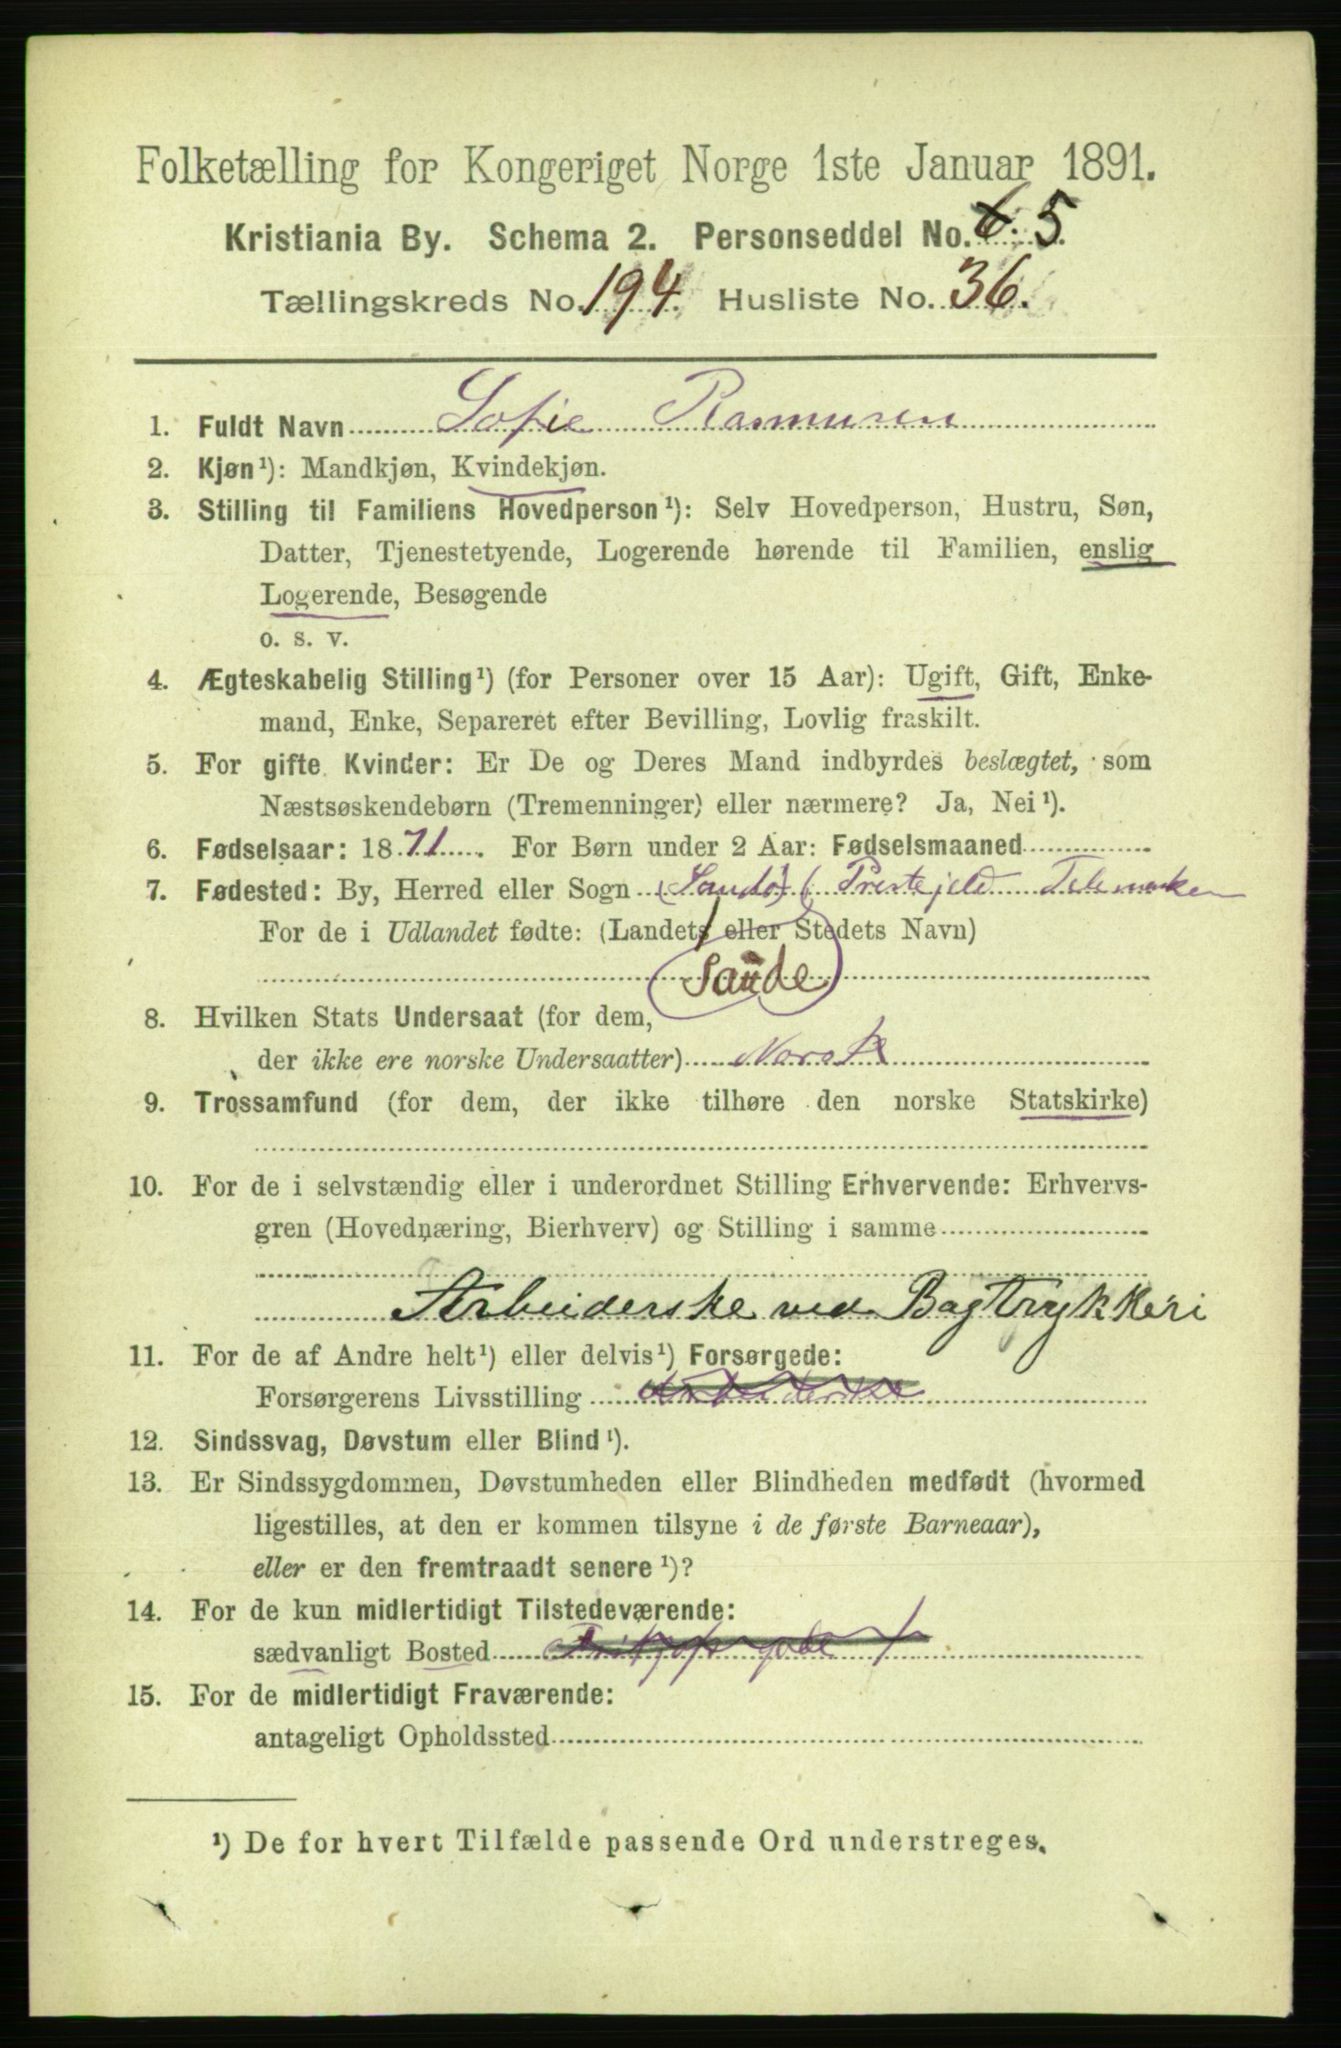 Folketælling for Kongeriget Norge 1ste Januar 1891.
Kristiania By. Schema 2. Personseddel No. 6. 5.
Tællingskreds No. 194. Husliste No. 36.
1. Fuldt Navn Sofie Rasmusen
2. Kjøn¹): Mandkjøn, Kvindekjøn.
3. Stilling til Familiens Hovedperson¹): Selv Hovedperson, Hustru, Søn,
Datter, Tjenestetyende, Logerende hørende til Familien, enslig
Logerende, Besøgende
o. s. v.
4. Ægteskabelig Stilling¹) (for Personer over 15 Aar): Ugift, Gift, Enke-
mand, Enke, Separeret efter Bevilling, Lovlig fraskilt.
5. For gifte Kvinder: Er De og Deres Mand indbyrdes beslægtet, som
Næstsøskendebørn (Tremenninger) eller nærmere? Ja, Nei¹).
6. Fødselsaar: 1871. For Børn under 2 Aar: Fødselsmaaned
7. Fødested: By, Herred eller Sogn (Sandø) Prestejeld Telemarken
For de i Udlandet fødte: (Landets eller Stedets Navn)
Saude
8. Hvilken Stats Undersaat (for dem,
der ikke ere norske Undersaatter) Norsk
9. Trossamfund (for dem, der ikke tilhøre den norske Statskirke)
10. For de i selvstændig eller i underordnet Stilling Erhvervende: Erhvervs-
gren (Hovednæring, Bierhverv) og Stilling i samme
Arbeiderske ved Bogtrykkeri
11. For de af Andre helt¹) eller delvis¹) Forsørgede:
Forsørgerens Livsstilling Arbeiderske
12. Sindssvag, Døvstum eller Blind¹).
13. Er Sindssygdommen, Døvstumheden eller Blindheden medfødt (hvormed
ligestilles, at den er kommen tilsyne i de første Barneaar),
eller er den fremtraadt senere¹)?
14. For de kun midlertidigt Tilstedeværende:
sædvanligt Bosted
15. For de midlertidigt Fraværende:
antageligt Opholdssted
¹) De for hvert Tilfælde passende Ord understreges.